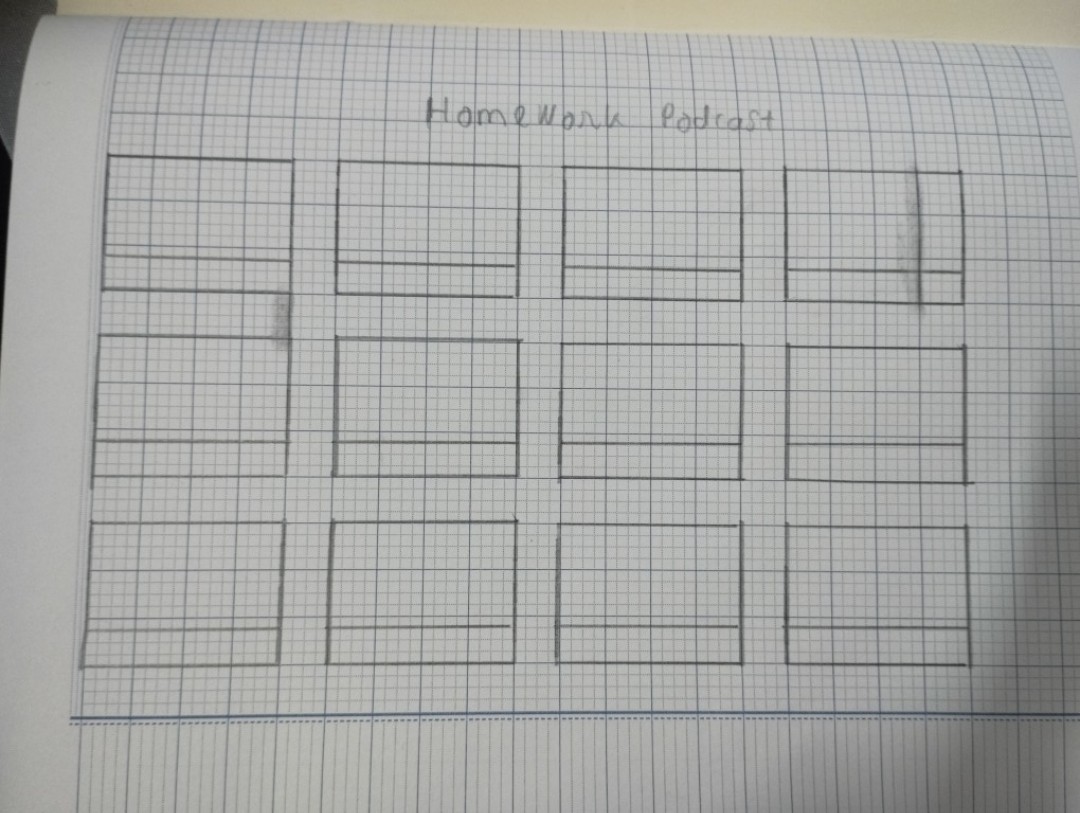 HomeWork Podcast